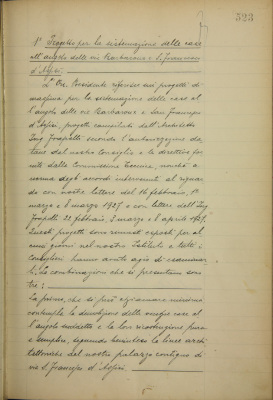 523
1° Progetto per la sistemazione delle case
all'angolo delle vie Barbaroux e S. Francesco
d'Assisi.
L'On. Presidente riferisce sui progetti di
massima per la sistemazione delle case al
l'angolo delle vie Barbaroux e San Francesco
d'Assisi, progetti compilati dall'Architetto
Ing. secondo l'autorizzazione da
tane dal nostro Consiglio e le direttive for
nite dalla Commissione nonchè a
norma degli accordi intervenuti al riguar
do con nostre lettere del 16 febbraio, 1°
marzo e 8 marzo 1927 e con lettere dell'Ing.
22 febbraio, 2 marzo e 8 aprile 1927.
Questi progetti sono rimasti esposti per al
cuni giorni nel nostro Istituto e tutti i
consiglieri hanno avuto agio di esaminar
li. Le combinazioni che si presentano sono
tre:
La prima, che si può chiamare minima
contempla la demolizione delle nostre case al
l'angolo suddetto e la loro ricostruzione pura
e semplice, seguendo le linee archi
tettoniche del nostro palazzo contiguo di
via S. Francesco d'Assisi.